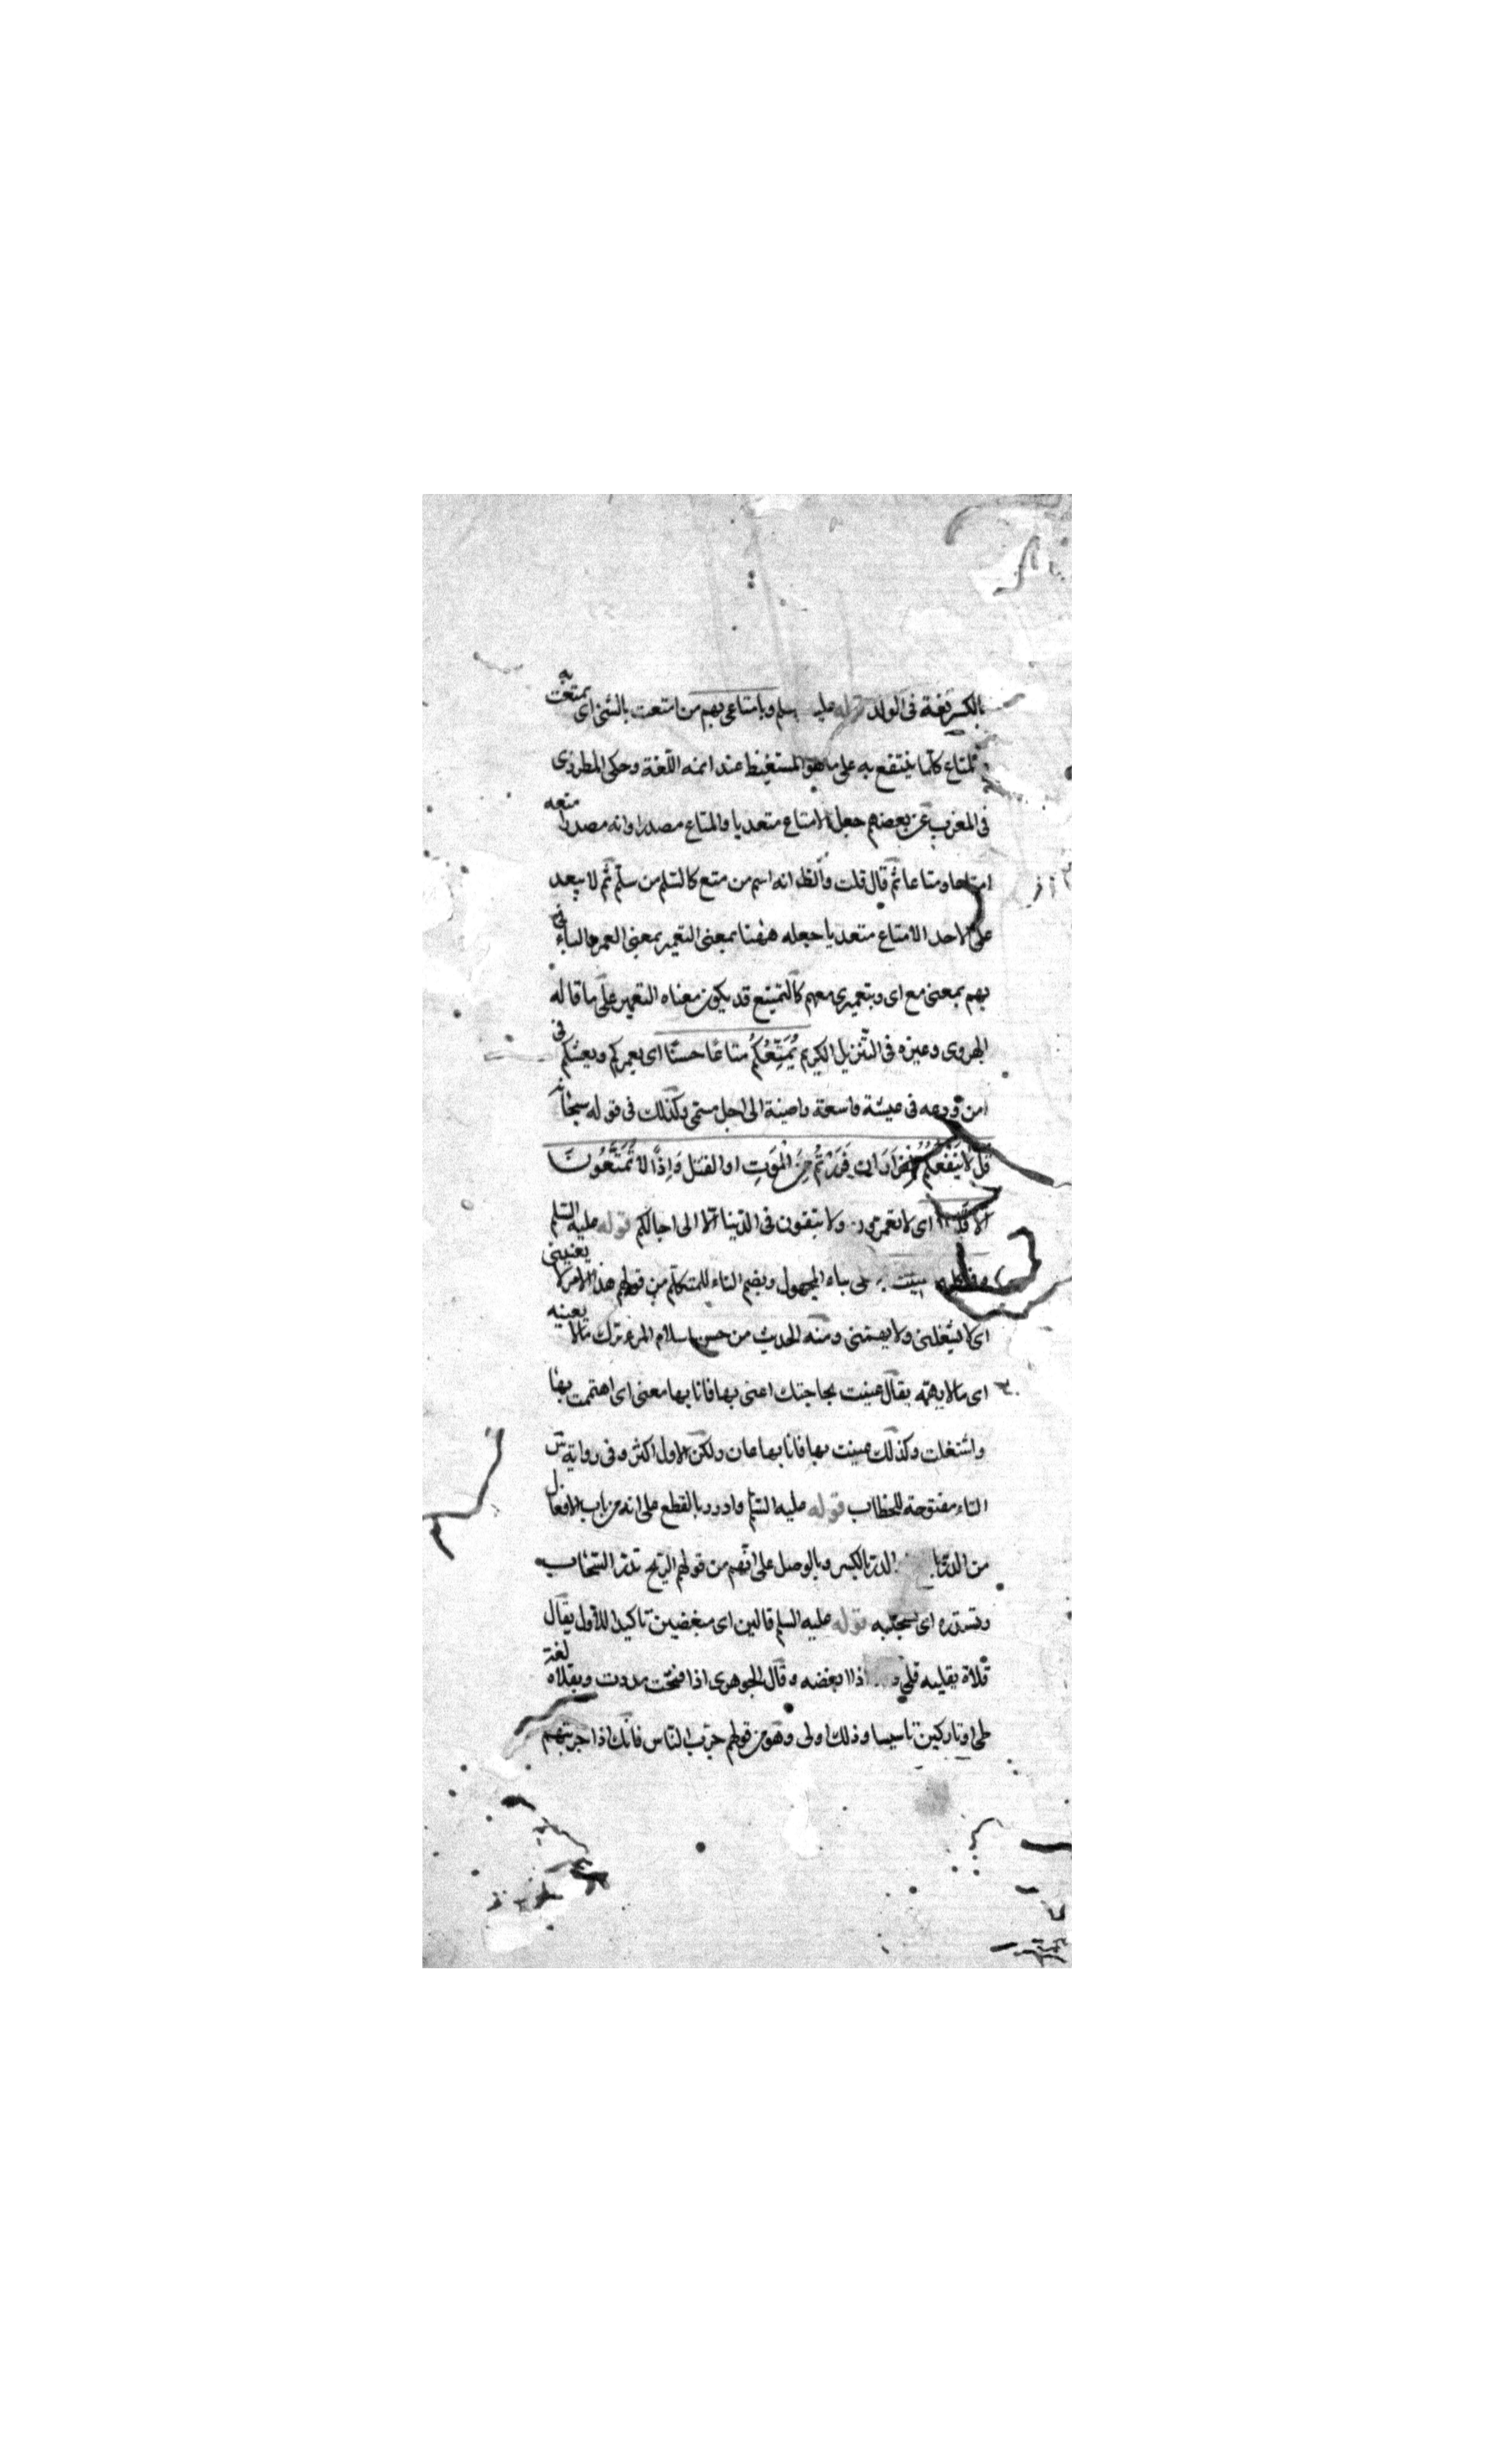 بالكسر لغة فى الولد قوله عليه السلم وبامتاعى بهم من امتعت بالشئ اى تمتعت به
المتاع كلما ينتفع به على ما هو المستفيظ عند ائمه اللغة وحكى المطرزى
فى المغرب عن بعضهم جعل الامتاع متعديا والمتاع مصدرا وانه مصدرا متعه
امتاعا ومتاعا ثم قال قلت والظ انه اسم من متع كالسلم من سلم ثم لا يبعد
على الاحد الامتاع متعديا جعله ههنا بمعنى التعمير بمعنى العمر فالباء فى
بهم بمعنى مع اى وبتعميرى معهم كالتمتيع قد يكون معناه التعمير على ما قاله
الهروى وغيره فى التنزيل الكريم يُمَتِّعْكُمْ متاعًا حسنًا اى يعمركم ويعشكم فى
امن ودعه فى عيشة واسعة راضية الى اجل مسمى وكذلك فى قوله سبحانه
قل لا ينفعكم الفرار ان فررتم من الموت او القتل واذًا لا تمتعون
الا قليلا اى لا تعمرون ولا تبقون فى الدنيا الا الى اجالكم قوله عليه السلم
عنيت به على بناء المجهول وبضم التاء للمتكلم من قولهم هذا الامر لا يعنينى
اى لا يشغلنى ولا يهمنى ومنه الحديث من حسن اسلام المرء ترك مالا يعنيه
اى مالا يهمه يقال عنيت بحاجتك اعنى بها فانا بها معنى اى اهتممت بها
واشتغلت وكذلك عنيت بها فانا بها عان ولكن الاول اكثر وفى رواية س
التاء مفتوحة للخطاب قوله عليه السلم وادرر بالقطع على انه من باب الافعال
من الدر الدر بالكسر وبالوصل على انهم من قولهم الريح تدر السحاب
وتستدره اى تستجلبه قوله عليه السلم قالين اى مبغضين تاكيدا للاول يقال
قلاه يقليه قلى و اذا ابغضه وقال الجوهرى اذا فتحت مددت ويقلاه لغة
طى او تاركين تاسيسا وذلك اولى وهو من قولهم جرب الناس فانك اذا جربتهم